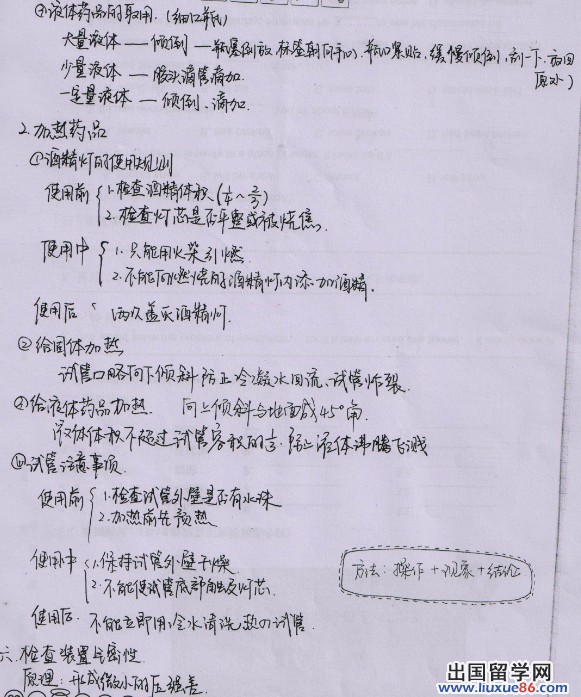 ④液体药品的取用.(细口瓶)
大量液体 — 倾倒 — 瓶塞倒放.标签朝向手心.瓶口紧贴,缓慢倾倒,刮一下,放回
原处)
少量液体 — 胶头滴管滴加.
一定量液体 — 倾倒.滴加.
2.加热药品
①酒精灯的使用规则
使用前 1.检查酒精体积.(1/4 ~ 2/3)
2.检查灯芯是否平整或被烧焦.
使用中 1.只能用火柴引燃.
2.不能向燃烧的酒精灯内添加酒精.
使用后 两次盖灭酒精灯.
②给固体加热
试管口略向下倾斜 防止冷凝水回流.试管炸裂.
给液体药品加热. 向上倾斜与地面成45°角.
液体体积不超过试管容积的1/3 防止液体沸腾飞溅
试管注意事项.
使用前 1.检查试管外壁是否有水珠
2.加热前先预热
使用中 1.保持试管外壁干燥.
2.不能使试管底部触及灯芯.
方法:操作+现象+结论
使用后. 不能立即用冷水清洗热的试管.
六.检查装置气密性.
原理:形成微小的压强差.
出国留学网
www.liuxue86.com